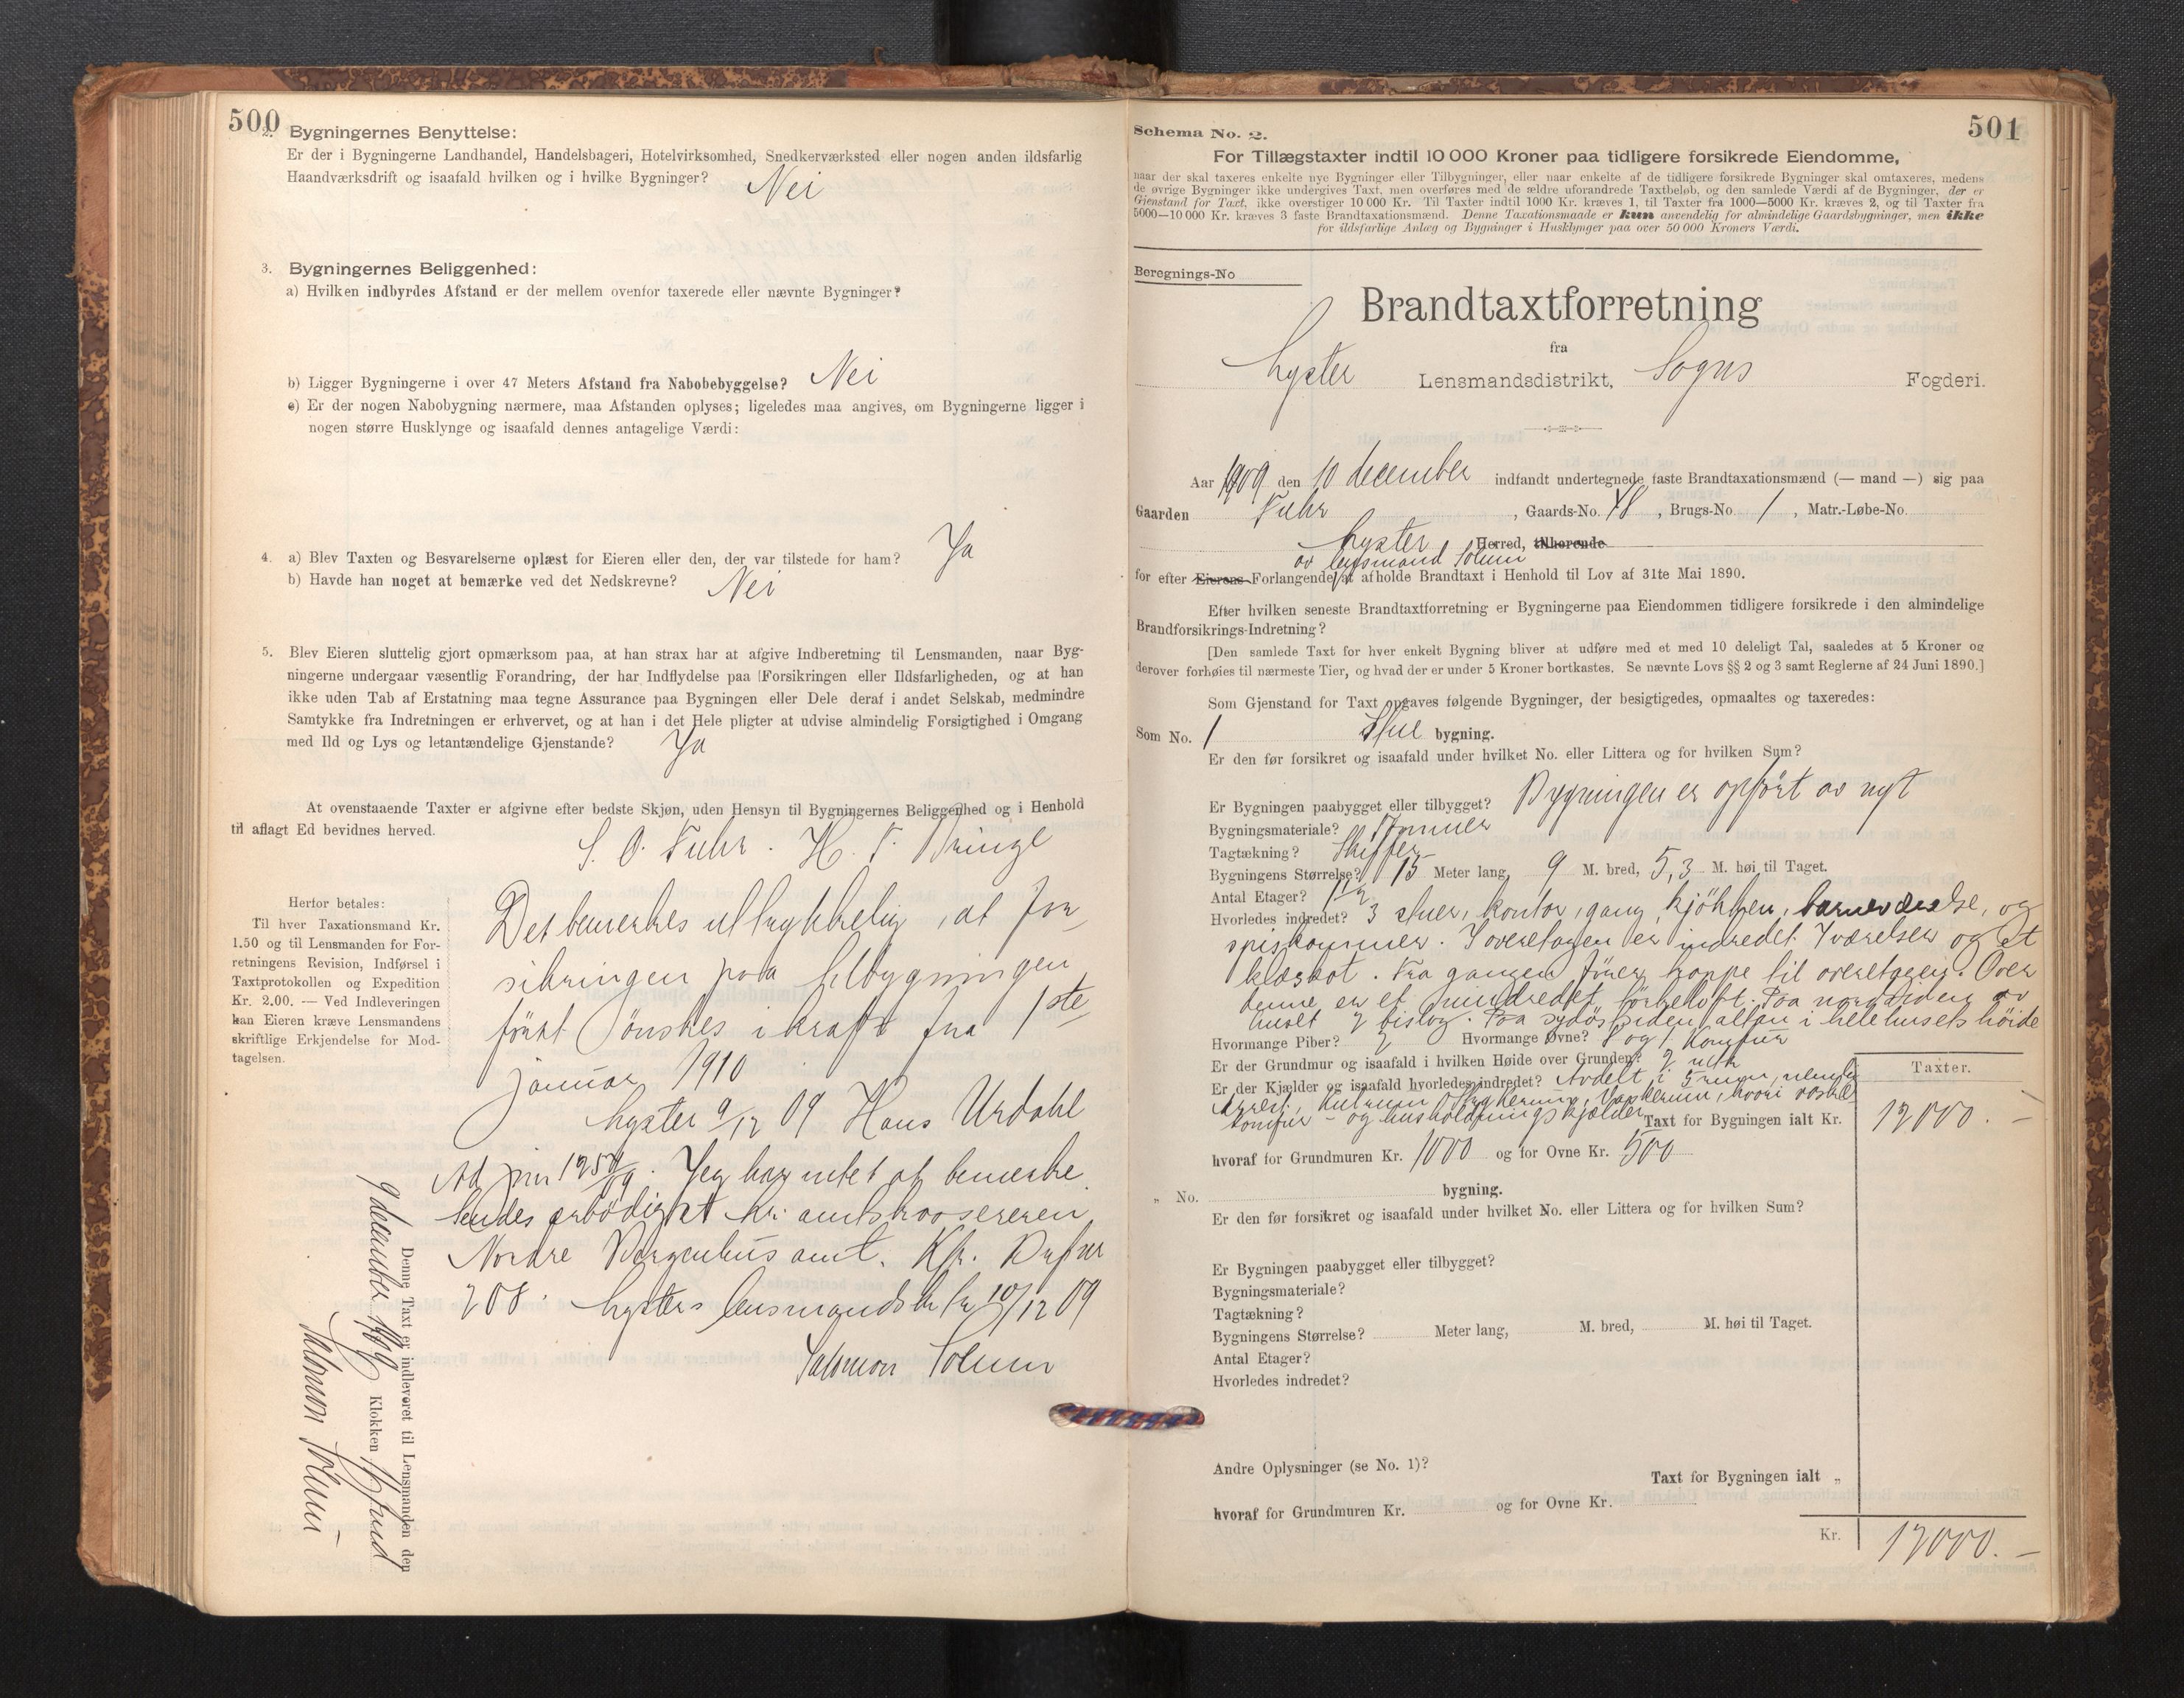 500
2. Bygningernes Benyttelse:
Er der i Bygningerne Landhandel, Handelsbageri, Hotelvirksomhed, Snedkerværksted eller nogen anden ildsfarlig
Haandværksdrift og isaafald hvilken og i hvilke Bygninger? Nei
3. Bygningernes Beliggenhed:
a) Hvilken indbyrdes Afstand er der mellem ovenfor taxerede eller nævnte Bygninger?
b) Ligger Bygningerne i over 47 Meters Afstand fra Nabobebyggelse? Nei
c) Er der nogen Nabobygning nærmere, maa Afstanden oplyses; ligeledes maa angives, om Bygningerne ligger i
nogen større Husklynge og isaafald dennes antagelige Værdi:
4. a) Blev Taxten og Besvarelserne oplæst for Eieren eller den, der var tilstede for ham? Ja
b) Havde han noget at bemærke ved det Nedskrevne? Nei
5. Blev Eieren sluttelig gjort opmærksom paa, at han strax har at afgive Indberetning til Lensmanden, naar Byg-
ningerne undergaar væsentlig Forandring, der har Indflydelse paa Forsikringen eller Ildsfarligheden, og at han
ikke uden Tab af Erstatning maa tegne Assurance paa Bygningen eller Dele deraf i andet Selskab, medmindre
Samtykke fra Indretningen er erhvervet, og at han i det Hele pligter at udvise almindelig Forsigtighed i Omgang
med Ild og Lys og letantændelige Gjenstande? Ja
At ovenstaaende Taxter er afgivne efter bedste Skjøn, uden Hensyn til Bygningernes Beliggenhed og i Henhold
til aflagt Ed bevidnes herved.
S. O. Fuhr. H. T. Bringe
Herfor betales:
Til hver Taxationsmand Kr.
1.50 og til Lensmanden for For-
retningens Revision, Indførsel i
Taxtprotokollen og Expedition
Kr. 2.00. — Ved Indleveringen
kan Eieren kræve Lensmandens
skriftlige Erkjendelse for Mod-
tagelsen.
Det bemerkes uttrykkelig, at for-
sikringen paa tilbygningen
først ønskes i kraft fra 1ste
januar 1910
Lyster 9/12 09 Hans Urdahl
Jeg har intet at bemerke.
Sendes ærbødigst hr. amtskassereren
Nordre Bergenhus amt.
208. Lysters lensmandsk 10/12 09
Salomon Solum
Denne Taxt er indleveret til Lensmanden den
9 december 1909 Klokken
Salomon Solum
501
Schema No. 2.
For Tillægstaxter indtil 10 000 Kroner paa tidligere forsikrede Eiendomme,
naar der skal taxeres enkelte nye Bygninger eller Tilbygninger, eller naar enkelte af de tidligere forsikrede Bygninger skal omtaxeres, medens
de øvrige Bygninger ikke undergives Taxt, men overføres med de ældre uforandrede Taxtbeløb, og den samlede Værdi af de Bygninger, der er
Gjenstand for Taxt, ikke overstiger 10 000 Kr. Til Taxter indtil 1000 Kr. kræves 1, til Taxter fra 1000—5000 Kr. kræves 2, og til Taxter fra
5000—10 000 Kr. kræves 3 faste Brandtaxationsmænd. Denne Taxationsmaade er kun anvendelig for almindelige Gaardsbygninger, men ikke
for ildsfarlige Anlæg og Bygninger i Husklynger paa over 50 000 Kroners Værdi.
Beregnings-No
Brandtaxtforretning
fra
Lyster Lensmandsdistrikt, Sogns Fogderi.
Aar 1909 den 10 december indfandt undertegnede faste Brandtaxationsmænd (— mand —) sig paa
Gaarden Fuhr, Gaards-No. 48, Brugs-No. 1, Matr.-Løbe-No.
Lyster Herred, tilhørende
av lensmand Solum
for efter Eierens Forlangende at afholde Brandtaxt i Henhold til Lov af 31te Mai 1890.
Efter hvilken seneste Brandtaxtforretning er Bygningerne paa Eiendommen tidligere forsikrede i den almindelige
Brandforsikrings-Indretning?
[Den samlede Taxt for hver enkelt Bygning bliver at udføre med et med 10 deleligt Tal, saaledes at 5 Kroner og
derover forhøies til nærmeste Tier, og hvad der er under 5 Kroner bortkastes. Se nævnte Lovs §§ 2 og 3 samt Reglerne af 24 Juni 1890.]
Som Gjenstand for Taxt opgaves følgende Bygninger, der besigtigedes, opmaaltes og taxeredes:
Som No. 1 Stue bygning.
Er den før forsikret og isaafald under hvilket No. eller Littera og for hvilken Sum?
Er Bygningen paabygget eller tilbygget? Bygningen er opført av nyt
Bygningsmateriale? Tømmer
Tagtækning? Skiffer
Bygningens Størrelse? 15 Meter lang, 9 M. bred, 5,3 M. høi til Taget.
Antal Etager? 1 1/2
Hvorledes indredet? 3 stuer, kontor, gang, kjøkken, barneværelse, og
spiskammer. I overetagen er indredet 7 værelser og et
klæskot. Fra gangen fører trappe til overetagen. Over
denne er et uindredet tørkeloft. Paa nordsiden av
huset 2 bislog. Paa sydøstsiden altan i hele husets høide
Hvormange Piber? 2 Hvormange Ovne? 8 og 1 Komfur
Er der Grundmur og isaafald i hvilken Høide over Grunden? 2 mtr
Er der Kjælder og isaafald hvorledes indredet? Avdelt i 5 rum, nemlig
Arrest, kulrum, rum, vaskerum, hvori vaske
komfur - og husholdningskjælder
Taxter.
Taxt for Bygningen ialt Kr. 12000. -
hvoraf for Grundmuren Kr. 1000 og for Ovne Kr. 500
„ No. bygning.
Er den før forsikret og isaafald under hvilket No. eller Littera og for hvilken Sum?
Er Bygningen paabygget eller tilbygget?
Bygningsmateriale?
Tagtækning?
Bygningens Størrelse? Meter lang, M. bred, M. høi til Taget.
Antal Etager?
Hvorledes indredet?
Andre Oplysninger (se No. 1)?
Taxt for Bygningen ialt „
hvoraf for Grundmuren Kr. og for Ovne Kr.
Kr. 12000. -